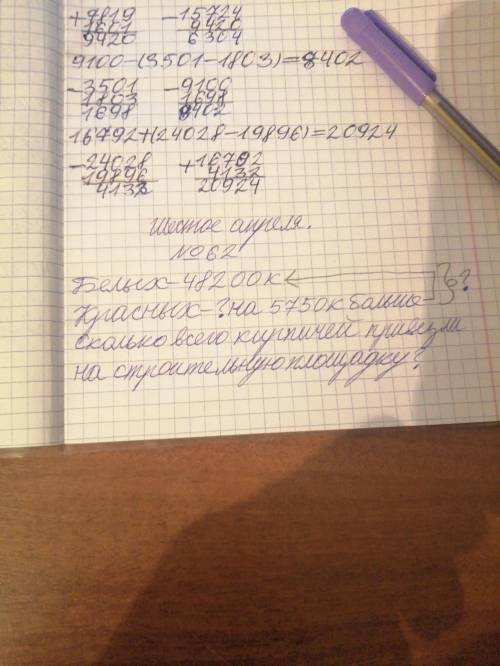 +7819 -15724
1601 9420
9420 6304
9100-(3501-1803)=8402
-3501 -9100
1803 1698
1698 8402
16792+(24028-19896)=20924
-24028 +16792
19896 4132
4132 20924
Шестое апреля.
№62
Белых-48200к
Красных-? на 5750к больше }?
сколько всего кирпичей привезли
на строительную площадку?